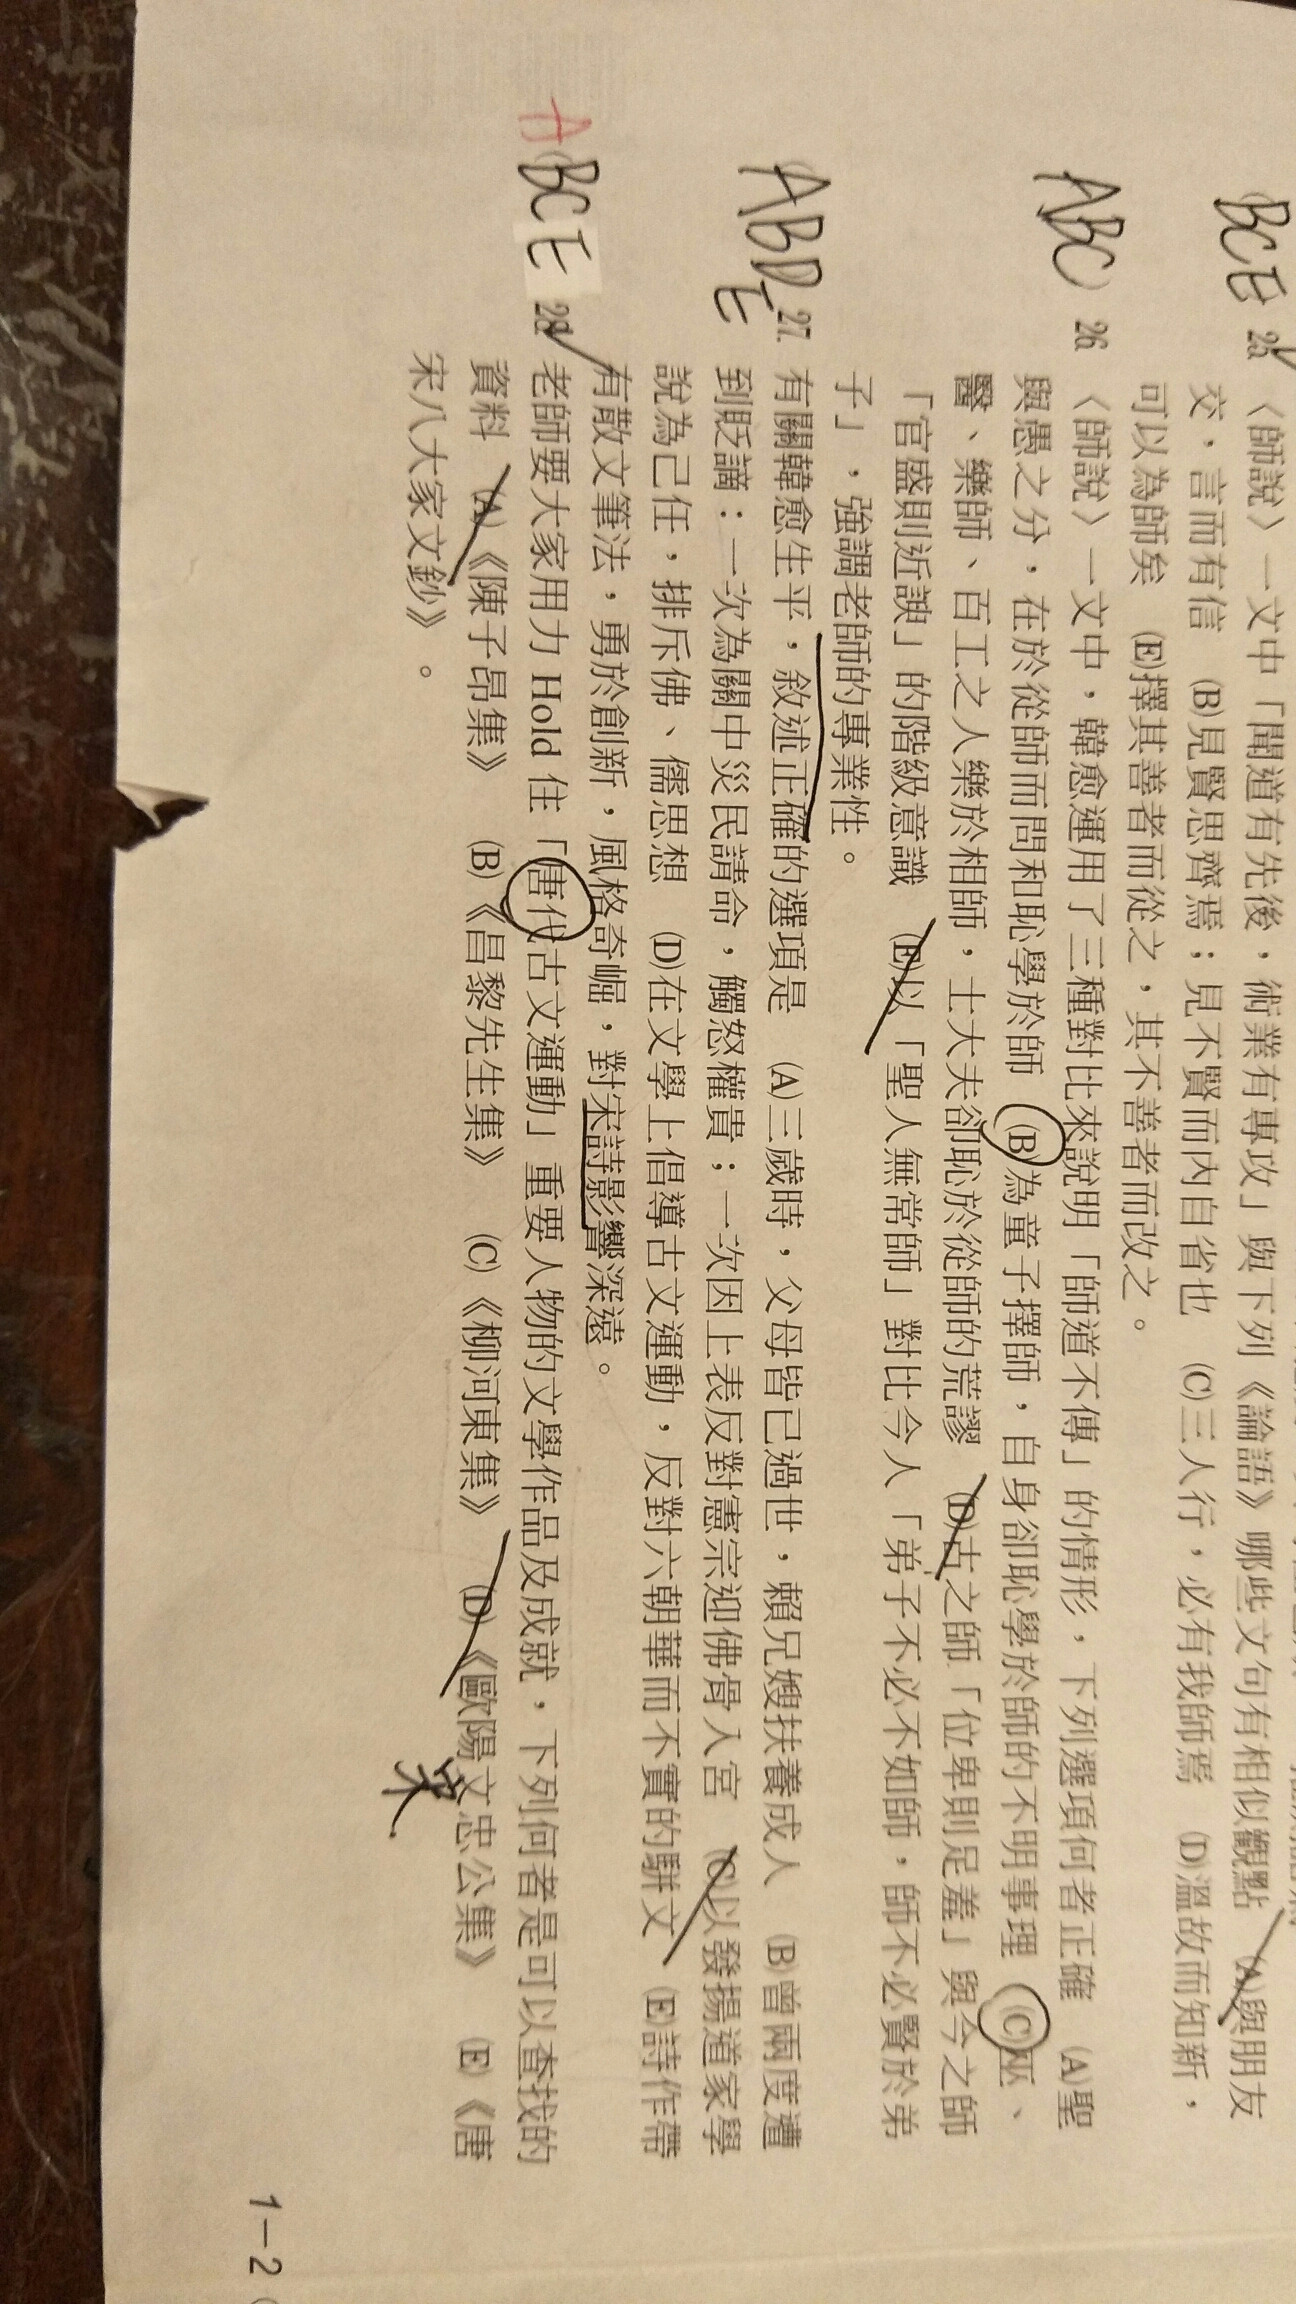 BCE 25. 〈師說〉一文中「聞道有先後，術業有專攻」與下列《論語》哪些文句有相似觀點 (A)與朋友
交，言而有信 (B)見賢思齊焉；見不賢而內自省也 (C)三人行，必有我師焉 (D)溫故而知新，
可以為師矣 (E)擇其善者而從之，其不善者而改之。
ABC 26. 〈師說〉一文中，韓愈運用了三種對比來說明「師道不傳」的情形，下列選項何者正確 (A)聖
與愚之分，在於從師而問和恥學於師 (B)為童子擇師，自身卻恥學於師的不明事理 (C)巫、
醫、樂師、百工之人樂於相師，士大夫卻恥於從師的荒謬 (D)古之師「位卑則足羞」與今之師
「官盛則近諛」的階級意識 (E)以「聖人無常師」對比今人「弟子不必不如師，師不必賢於弟
子」，強調老師的專業性。
ABDE 27. 有關韓愈生平，敘述正確的選項是 (A)三歲時，父母皆已過世，賴兄嫂扶養成人 (B)曾兩度遭
到貶謫：一次為關中災民請命，觸怒權貴；一次因上表反對憲宗迎佛骨入宮 (C)以發揚道家學
說為己任，排斥佛、儒思想 (D)在文學上倡導古文運動，反對六朝華而不實的駢文 (E)詩作帶
有散文筆法，勇於創新，風格奇崛，對宋詩影響深遠。
ABCE 28. 老師要大家用力 Hold 住「唐代古文運動」重要人物的文學作品及成就，下列何者是可以查找的
資料 (A)《陳子昂集》 (B)《昌黎先生集》 (C)《柳河東集》 (D)《歐陽文忠公集》 (E)《唐
宋八大家文鈔》。
宋
1－2